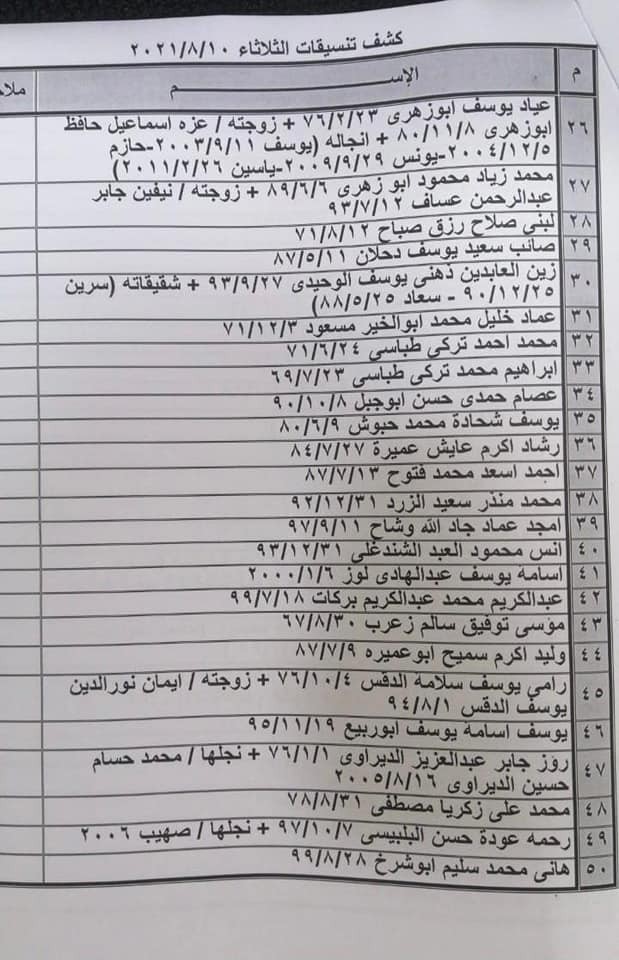 كشف تنسيقات الثلاثاء ٢٠٢١/٨/١٠
م الإســـــــم ملاح
٢٦ عياد يوسف ابوزهرى ٧٦/٢/٢٣ + زوجته / عزه اسماعيل حافظ
ابوزهرى ٨٠/١١/٨ + انجاله (يوسف ٢٠٠٣/٩/١١-حازم
٢٠٠٤/١٢/٥-يونس ٢٠٠٩/٩/٢٩-ياسين ٢٠١١/٢/٢٦)
٢٧ محمد زياد محمود ابو زهرى ٨٩/٦/٦ + زوجته / نيفين جابر
عبدالرحمن عساف ٩٣/٧/١٢
٢٨ لبنى صلاح رزق صباح ٧١/٨/١٢
٢٩ صائب سعيد يوسف دحلان ٨٧/٥/١١
٣٠ زين العابدين ذهنى يوسف الوحيدى ٩٣/٩/٢٧ + شقيقاته (سرين
٩٠/١٢/٢٥ - سعاد ٨٨/٥/٢٥)
٣١ عماد خليل محمد ابوالخير مسعود ٧١/١٢/٣
٣٢ محمد احمد تركى طباسى ٧١/٦/٢٤
٣٣ ابراهيم محمد تركى طباسى ٦٩/٧/٢٣
٣٤ عصام حمدى حسن ابوجبل ٩٠/١٠/٨
٣٥ يوسف شحادة محمد حبوش ٨٠/٦/٩
٣٦ رشاد اكرم عايش عميرة ٨٤/٧/٢٧
٣٧ احمد اسعد محمد فتوح ٨٧/٧/١٣
٣٨ محمد منذر سعيد الزرد ٩٢/١٢/٣١
٣٩ امجد عماد جاد الله وشاح ٩٧/٩/١١
٤٠ انس محمود العبد الشندغلى ٩٣/١٢/٣١
٤١ اسامه يوسف عبدالهادى لوز ٢٠٠٠/١/٦
٤٢ عبدالكريم محمد عبدالكريم بركات ٩٩/٧/١٨
٤٣ موسى توفيق سالم زعرب ٦٧/٨/٣٠
٤٤ وليد اكرم سميح ابوعميره ٨٧/٧/٩
٤٥ رامى يوسف سلامه الدقس ٧٦/١٠/٤ + زوجته / ايمان نورالدين
يوسف الدقس ٩٤/٨/١
٤٦ يوسف اسامه يوسف ابوربيع ٩٥/١١/١٩
٤٧ روز جابر عبدالعزيز الديراوى ٧٦/١/١ + نجلها / محمد حسام
حسين الديراوى ٢٠٠٥/٨/١٦
٤٨ محمد على زكريا مصطفى ٧٨/٨/٣١
٤٩ رحمه عودة حسن البلبيسى ٩٧/١٠/٧ + نجلها / صهيب ٢٠٠٦
٥٠ هانى محمد سليم ابوشرخ ٩٩/٨/٢٨